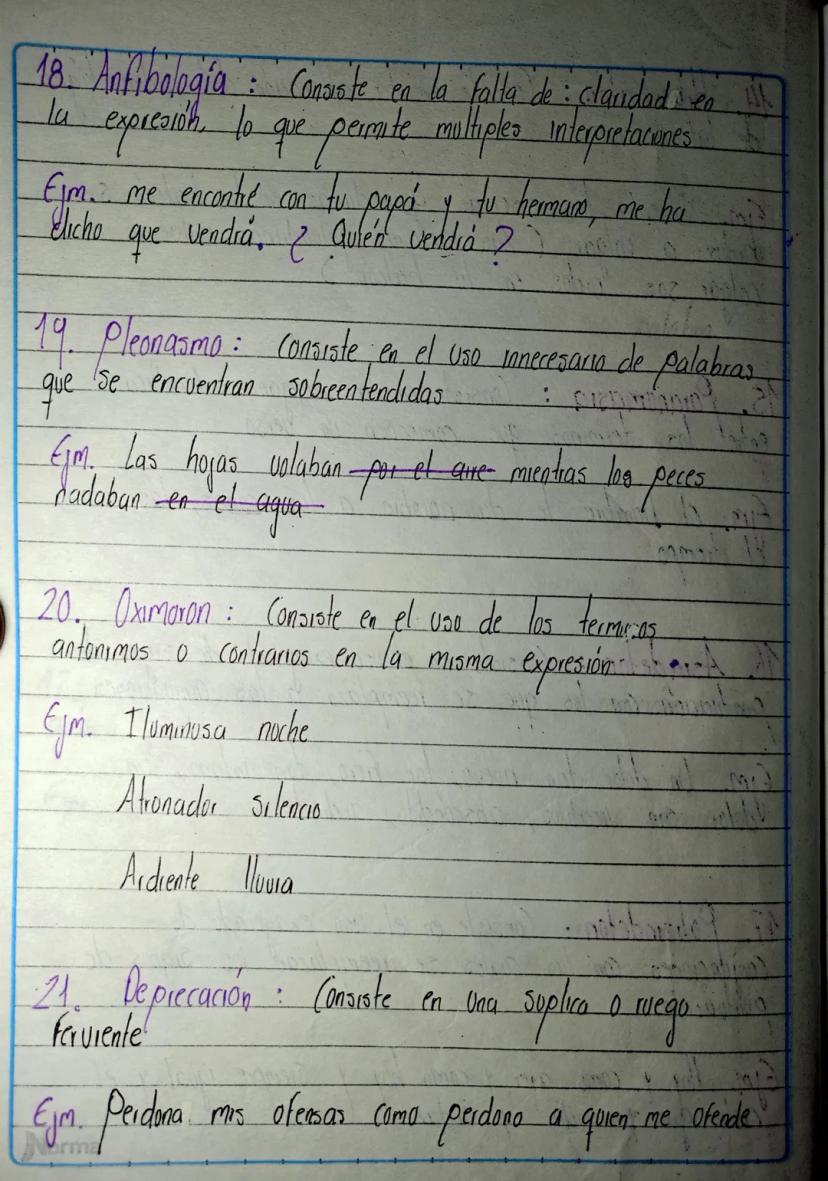 18. Anfibología : Consiste en la falta de : claridad en
la expresión, lo que permite multiples interpretaciones
Ejm. me encontré con tu papá y tu hermano, me ha
dicho que vendrá. ¿ Quién vendrá ?
19. Pleonasmo : Consiste en el uso innecesario de palabras
que se encuentran sobreentendidas :
Ejm. Las hojas volaban por el aire mientras los peces
nadaban en el agua
20. Oximoron : Consiste en el uso de los terminos
antonimos o contrarios en la misma expresión
Ejm. Iluminosa noche
Atronador silencio
Ardiente lluvia
21. Deprecación : Consiste en una suplica o ruego
ferviente
Ejm. Perdona mis ofensas como perdono a quien me ofende
Norma